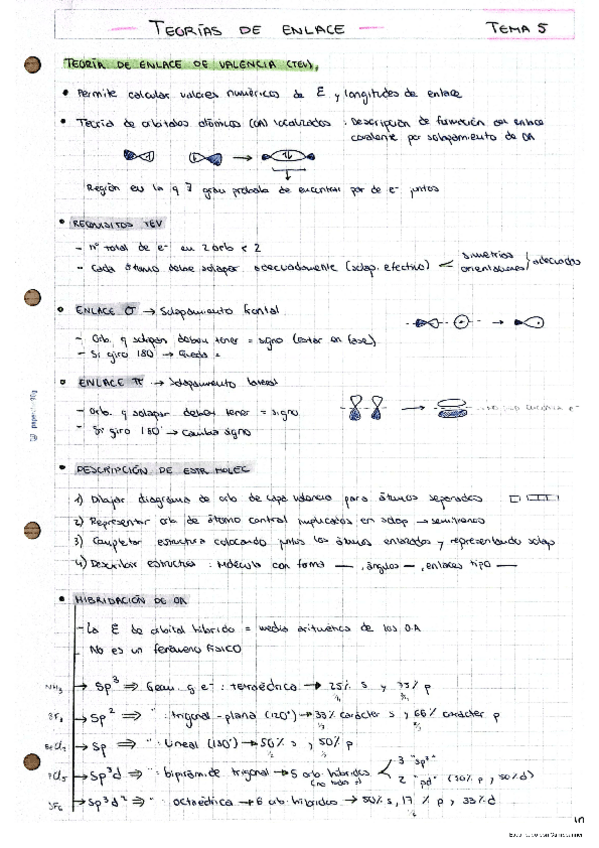 TEORÍAS DE ENLACE TEMA 5
TEORÍA DE ENLACE DE VALENCIA (TEV),
• Permite calcular valores numéricos de E y longitudes de enlace
• Teoría de orbitales atómicos (OA) localizados : Descripción de formación del enlace
covalente por solapamiento de OA
Región en la q ∃ gran probab de encontrar par de e- juntos
• REQUISITOS TEV
- nº total de e- en 2 orb < 2
- Cada átomo debe solapar adecuadamente (solap. efectivo) < simetrías orientaciones } adecuadas
• ENLACE σ → Solapamiento frontal
- Orb. q solapan deben tener = signo (estar en fase)
- Si giro 180° → Queda =
• ENLACE π → Solapamiento lateral
- Orb. q solapan deben tener = signo
- Si giro 180° → Cambia signo
• DESCRIPCIÓN DE ESTR MOLEC
1) Dibujar diagrama de orb de capa valencia para átomos separados
2) Representar orb de átomo central implicados en solap →
3) Completar estructura colocando juntos los átomos enlazados y representando solap
4) Describir estructura : Molécula con forma —, ángulos —, enlaces tipo —
• HIBRIDACIÓN DE OA
- La E de orbital híbrido = media aritmética de los OA
- No es un fenómeno FÍSICO
NH3 → Sp3 ⇒ Geom. g e- : tetraédrica → 25% s y 75% p
BF3 → Sp2 ⇒ " : trigonal-plana (120°) → 33% carácter s, 66% carácter p
BeCl2 → Sp ⇒ " : Lineal (180°) → 50% s, 50% p
PCl5 → Sp3d ⇒ " : bipirámide trigonal → 5 orb. híbridos < 3 "sp2"
2 "pd" (50% p, 50% d)
SF6 → Sp3d2 ⇒ " : octaédrica → 6 orb. híbridos → 50% , 17 % , 33% d